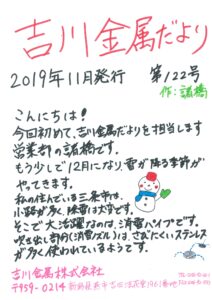 吉川金属だより
2019年11月発行 第122号
作:諸橋
こんにちは!
今回初めて、吉川金属だよりを担当します
営業部の諸橋です。
もう少しで12月になり、雪が降る季節が
やってきます。
私の住んでいる三条市は、
小路が多く、除雪は大変です。
そこで大活躍なのは、消雪パイプです。
吹き出し部分(消雪ノズル)は、さびにくいステンレス
が多く使われているようです。
吉川金属株式会社
〒959-0214 新潟県燕市吉田法花堂1961番地